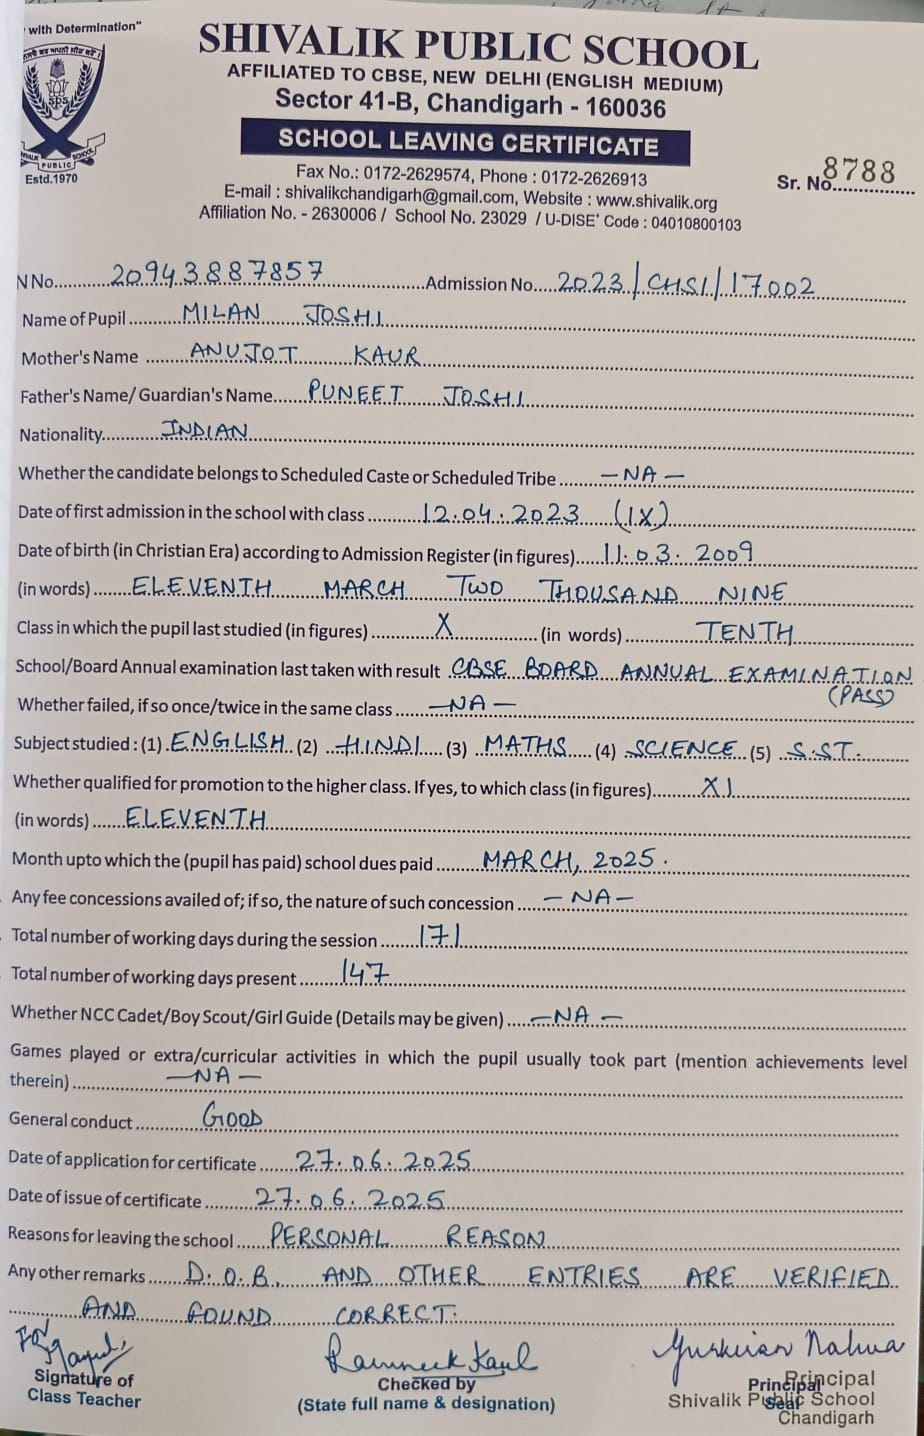 with Determination"
SHIVALIK PUBLIC SCHOOL
AFFILIATED TO CBSE, NEW DELHI (ENGLISH MEDIUM)
Sector 41-B, Chandigarh - 160036
SCHOOL LEAVING CERTIFICATE
sps
PUBLIC
SCHOOL
Estd.1970
Fax No.: 0172-2629574, Phone : 0172-2626913
E-mail : shivalikchandigarh@gmail.com, Website : www.shivalik.org
Affiliation No. - 2630006 / School No. 23029 / U-DISE+ Code : 04010800103
Sr. No. 8788
N No. 20943887857 Admission No. 2023/CHSI/17002
Name of Pupil MILAN JOSHI
Mother's Name ANUJOT KAUR
Father's Name/ Guardian's Name PUNEET JOSHI
Nationality INDIAN
Whether the candidate belongs to Scheduled Caste or Scheduled Tribe - NA -
Date of first admission in the school with class 12.04.2023 (IX)
Date of birth (in Christian Era) according to Admission Register (in figures) 11.03.2009
(in words) ELEVENTH MARCH TWO THOUSAND NINE
Class in which the pupil last studied (in figures) X (in words) TENTH
School/Board Annual examination last taken with result CBSE BOARD ANNUAL EXAMINATION
(PASS)
Whether failed, if so once/twice in the same class - NA -
Subject studied : (1) ENGLISH (2) HINDI (3) MATHS (4) SCIENCE (5) S.ST.
Whether qualified for promotion to the higher class. If yes, to which class (in figures) XI
(in words) ELEVENTH
Month upto which the (pupil has paid) school dues paid MARCH, 2025.
Any fee concessions availed of; if so, the nature of such concession - NA -
Total number of working days during the session 171
Total number of working days present 147
Whether NCC Cadet/Boy Scout/Girl Guide (Details may be given) - NA -
Games played or extra/curricular activities in which the pupil usually took part (mention achievements level
therein) - NA -
General conduct GOOD
Date of application for certificate 27.06.2025
Date of issue of certificate 27.06.2025
Reasons for leaving the school PERSONAL REASON
Any other remarks D.O.B. AND OTHER ENTRIES ARE VERIFIED
AND FOUND CORRECT.
For
Ramneek Kaul
Signature of
Class Teacher
Checked by
(State full name & designation)
Principal
Seal
Principal
Shivalik Public School
Chandigarh